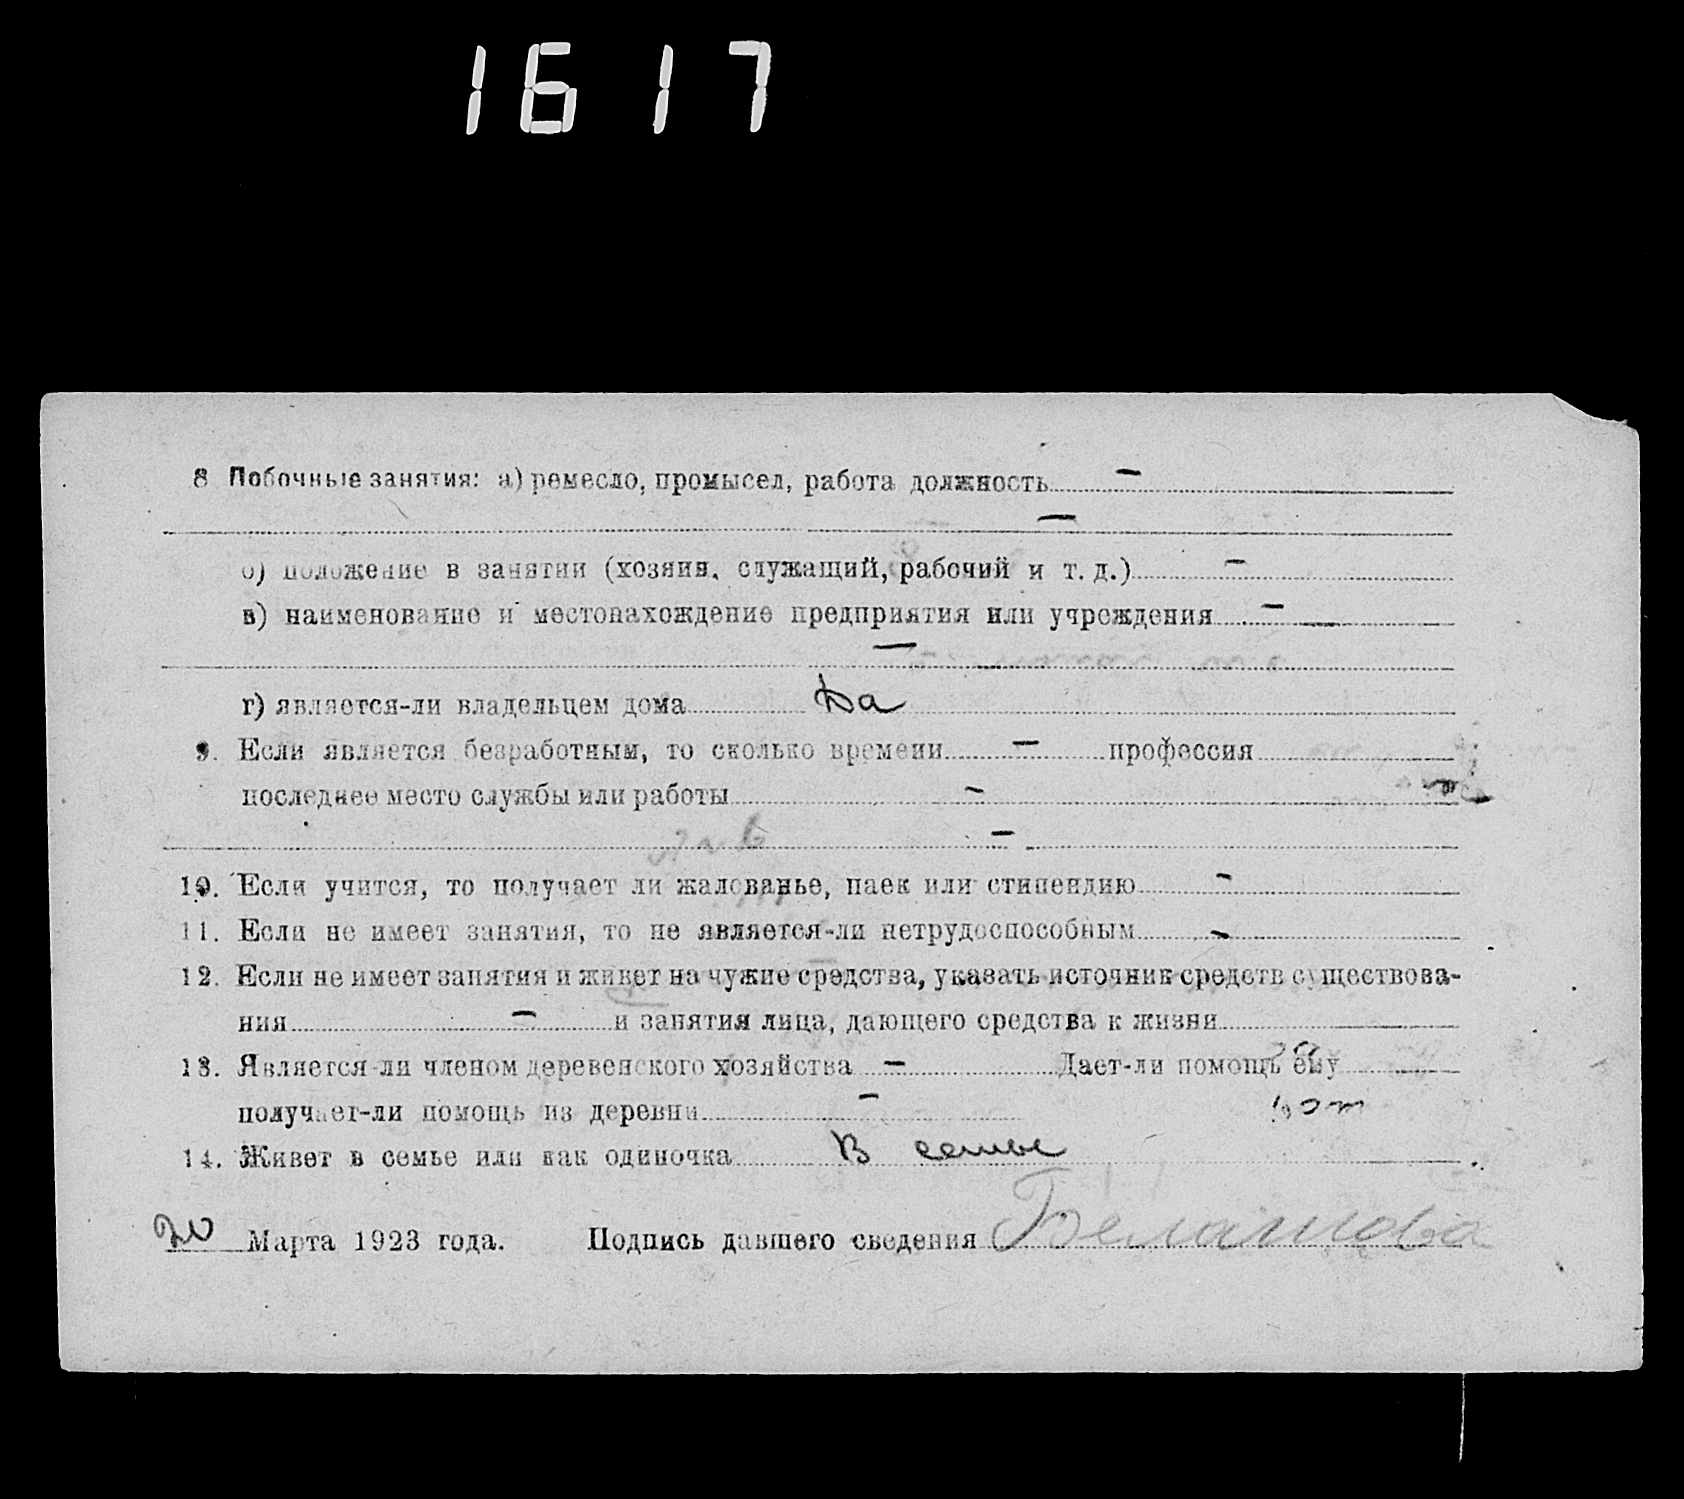 1617
8 Побочные занятия: а) ремесло, промысел, работа должность —
—
б) положение в занятии (хозяин, служащий, рабочий и т. д.) —
в) наименование и местонахождение предприятия или учреждения —
—
г) является-ли владельцем дома Да
9. Если является безработным, то сколько времени — профессия
последнее место службы или работы -
-
10. Если учится, то получает ли жалованье, паек или стипендию -
11. Если не имеет занятия, то не является-ли нетрудоспособным -
12. Если не имеет занятия и живет на чужие средства, указать источник средств существова-
ния - и занятия лица, дающего средства к жизни
13. Является-ли членом деревенского хозяйства — Дает-ли помощь ему
получает-ли помощь из деревни -
14. Живет в семье или как одиночка В семье
20 Марта 1923 года. Подпись давшего сведения